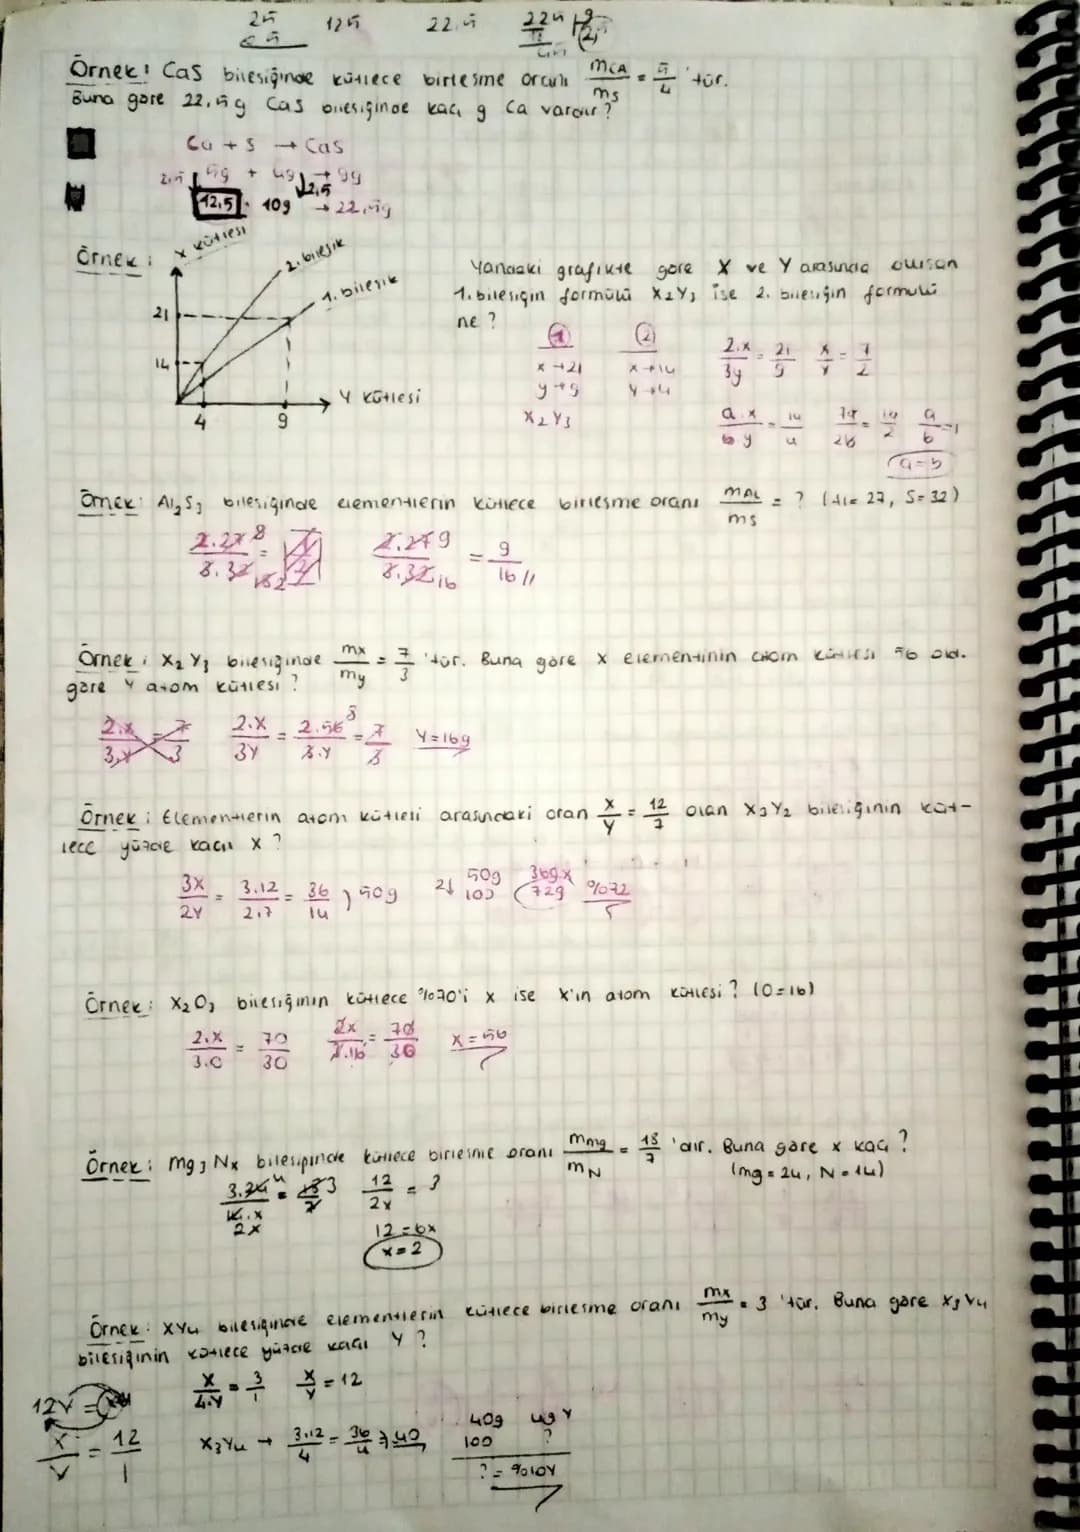 25 125 22,5 225 | 9
Örnek: CaS bileşiğinde kütlece birleşme oranı mCA/mS = 5/4 'tür.
Buna göre 22,5g CaS bileşiğinde kaç g Ca vardır?
Ca + S → CaS
2,5 ↓ 5g + 4g ↓ 2,5 → 9g
12,5 · 10g → 22,5g
Örnek: X kütlesi
2. bileşik
1. bileşik
21
14
4 9
Y kütlesi
Yandaki grafikte göre X ve Y arasında oluşan
1. bileşiğin formülü X2Y3 ise 2. bileşiğin formülü
ne?
1 2
x→21 x→14
y→9 y→4
X2Y3
2.x/3y = 21/9 x/y = 7/2
a.x/b.y = 14/4 7a/2b = 14/2 a/b = 1
a=b
Örnek: Al2S3 bileşiğinde elementlerin kütlece birleşme oranı mAL/mS = ? (Al= 27, S= 32)
2.27/3.32 = 9/16 //
Örnek: X2Y3 bileşiğinde mx/my = 7/3 'tür. Buna göre X elementinin atom kütlesi 56 old.
göre Y atom kütlesi?
2.x/3.y = 7/3 2.X/3Y = 2.56/3.Y = 7/3 Y=16g
Örnek: Elementlerin atom kütleli arasındaki oran X/Y = 12/7 olan X3Y2 bileşiğinin küt-
lece yüzde kaçı X?
3X/2Y = 3.12/2.7 = 36/14 } 50g 2↓ 50g 36g.x
100 72g %72
Örnek: X2O3 bileşiğinin kütlece %70'i x ise X'in atom kütlesi? (O=16)
2.x/3.O = 70/30 2x/3.16 = 70/30 x=56
Örnek: Mg3Nx bileşiğinde kütlece birleşme oranı mmg/mN = 18/7 'dir. Buna göre x kaç?
(mg= 24, N=14)
3.24/14.x = 18/7 12/2x = 3
2x 12=6x
x=2
Örnek: XY4 bileşiğinde elementlerin kütlece birleşme oranı mx/my = 3 'tür. Buna göre X3Y4
bileşiğinin kütlece yüzde kaçı Y?
X/4.Y = 3/1 X/Y = 12
12Y =
X/Y = 12/1 X3Y4 → 3.12/4 = 36/4 40 40g 4g Y
100 ?
? = %10Y